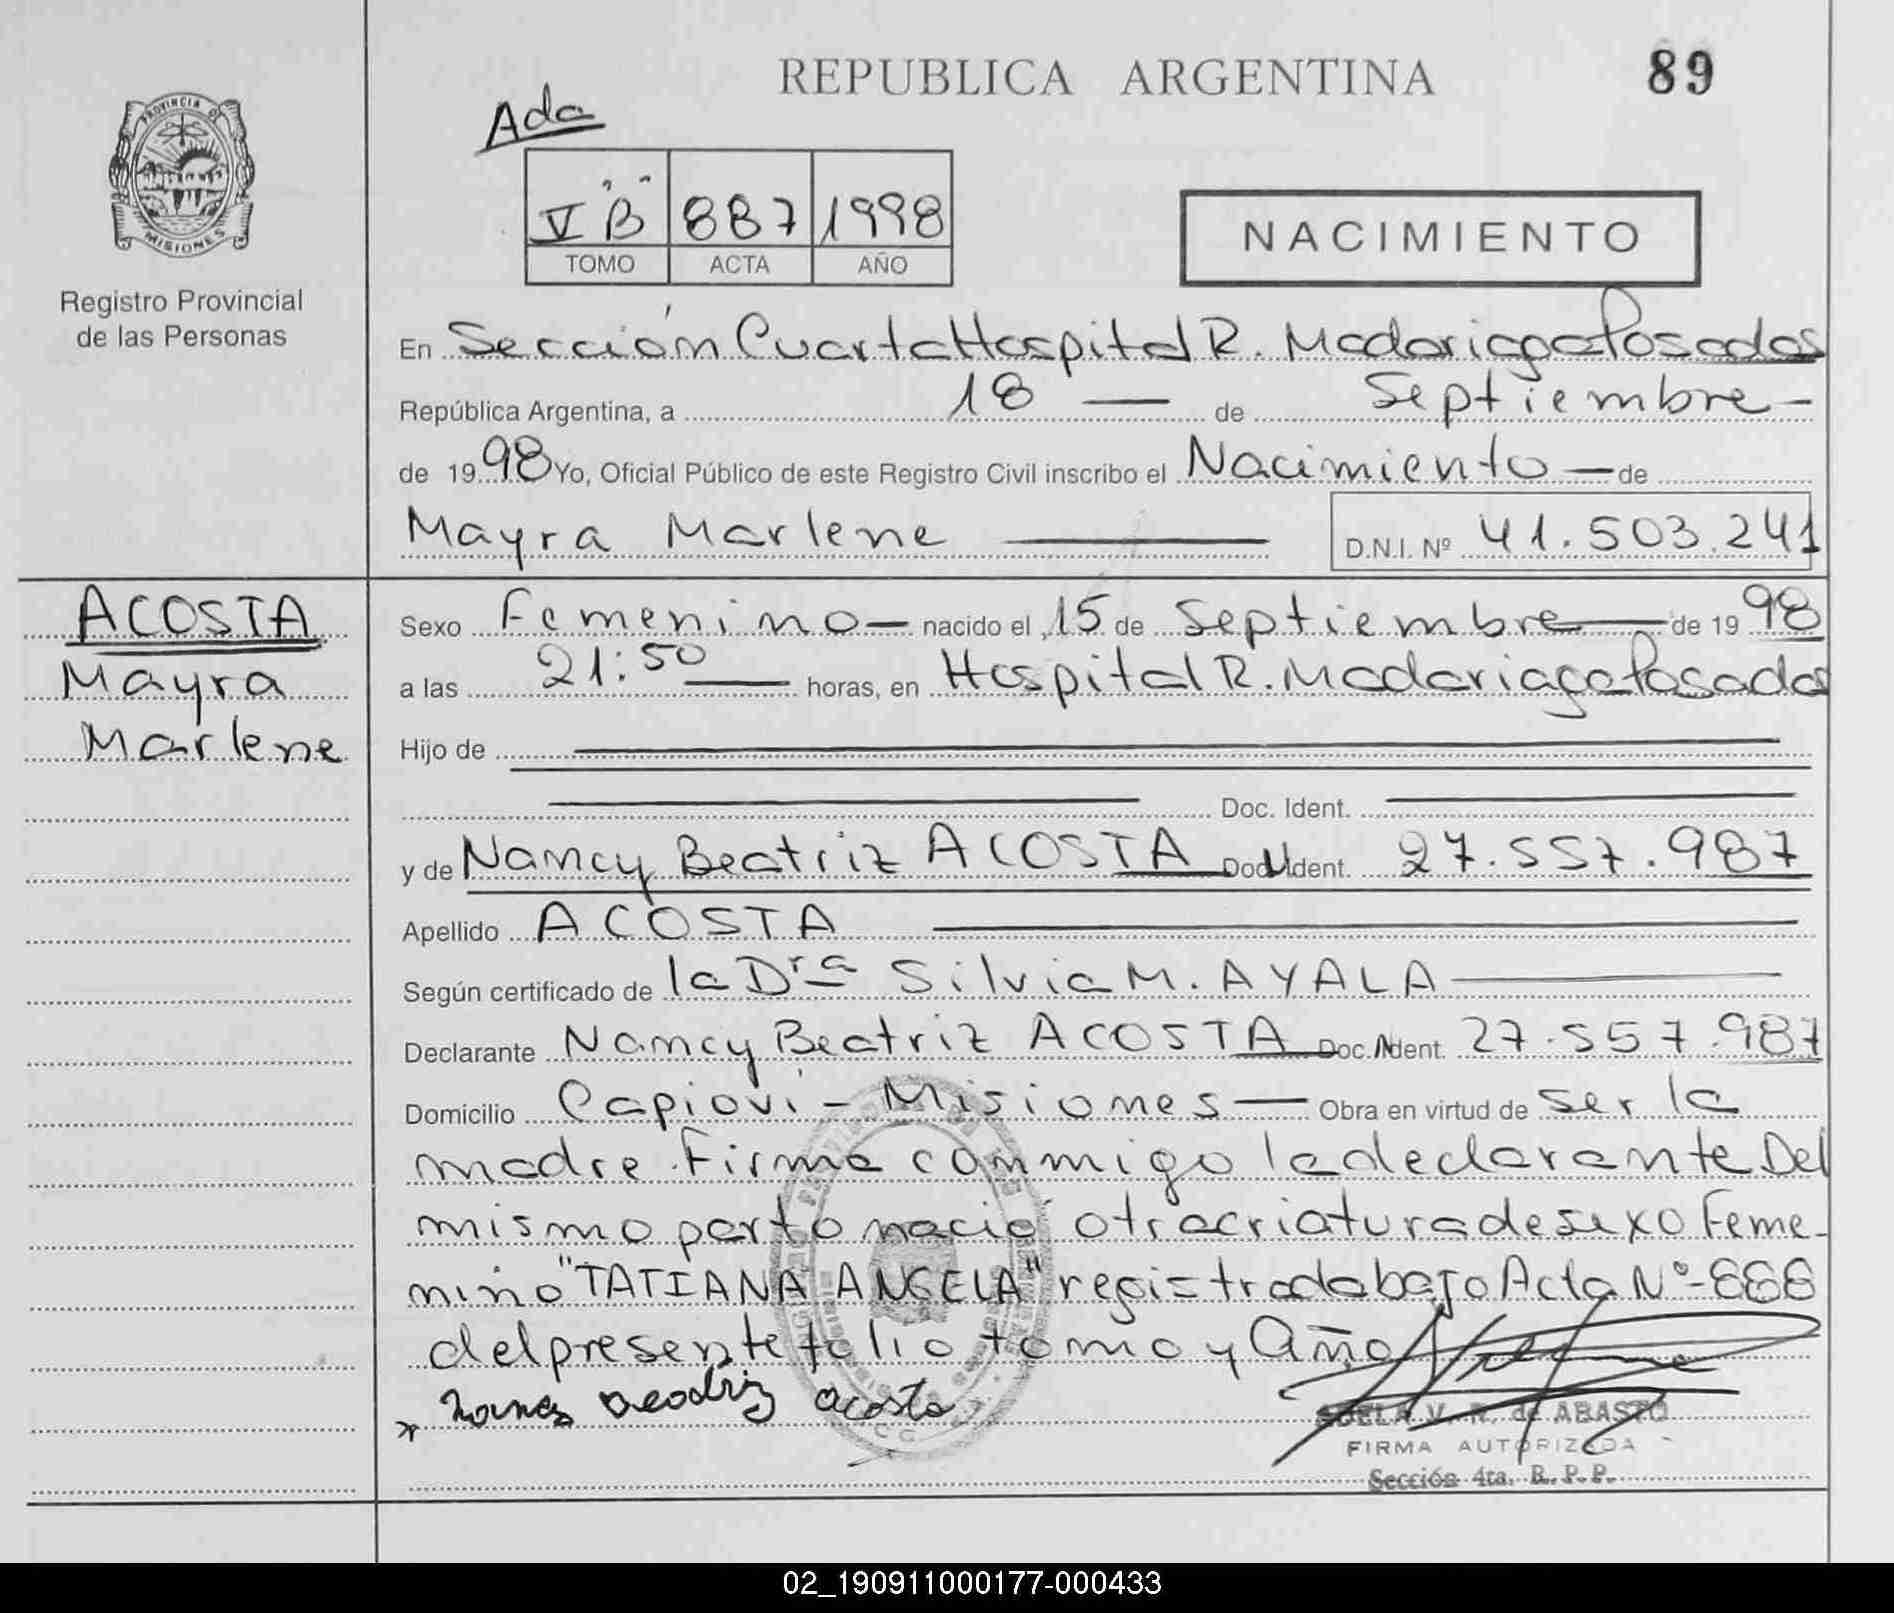 REPUBLICA ARGENTINA
89
Ada
V "B" 887 1998
TOMO ACTA AÑO
NACIMIENTO
PROVINCIA DE
MISIONES
Registro Provincial
de las Personas
En Sección Cuarta Hospital R. Madariaga Posadas
República Argentina, a 18 — de Septiembre -
de 1998 Yo, Oficial Público de este Registro Civil inscribo el Nacimiento — de
Mayra Marlene — D.N.I. Nº 41.503.241
ACOSTA
Mayra
Marlene
Sexo Femenino — nacido el 15 de Septiembre — de 1998
a las 21:50 — horas, en Hospital R. Madariaga Posadas
Hijo de
Doc. Ident.
y de Nancy Beatriz ACOSTA Doc. Ident. 27.557.987
Apellido ACOSTA
Según certificado de la Dra Silvia M. AYALA
Declarante Nancy Beatriz ACOSTA Doc. Ident. 27.557.987
Domicilio Capioví - Misiones — Obra en virtud de ser la
madre. Firma conmigo la declarante Del
mismo parto nació otra criatura de sexo Feme-
nino "TATIANA ANGELA" registrada bajo Acta Nº - 886
del presente folio tomo y Año
x Nancy Beatriz acosta
V. R. de ABASTO
FIRMA AUTORIZADA
Sección 4ta. R. P. P.
02_190911000177-000433